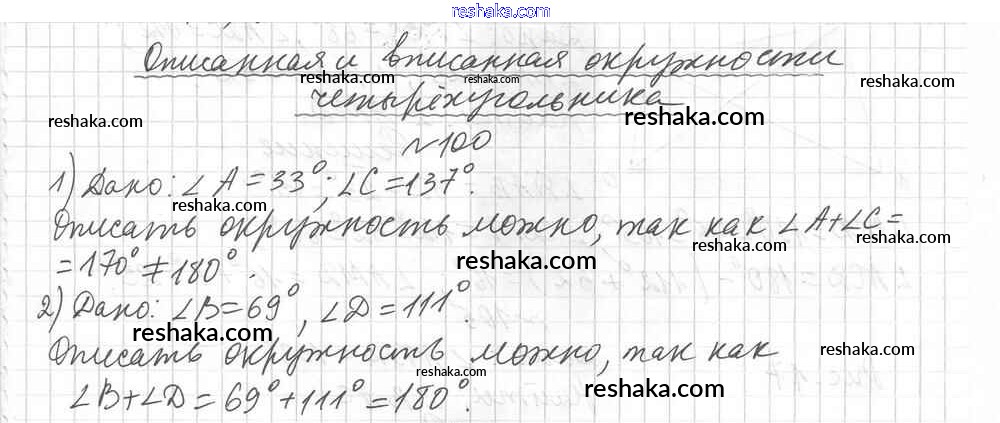 reshaka.com
Описанная и вписанная окружности
reshaka.com reshaka.com
четырёхугольника
reshaka.com reshaka.com
№100
1) Дано: ∠A=33°; ∠C=137°.
reshaka.com reshaka.com
Описать окружность можно, так как ∠A+∠C=
reshaka.com reshaka.com
=170°≠180°.
2) Дано: ∠B=69°, ∠D=111°.
reshaka.com reshaka.com
Описать окружность можно, так как
reshaka.com reshaka.com
∠B+∠D=69°+111°=180°.
reshaka.com